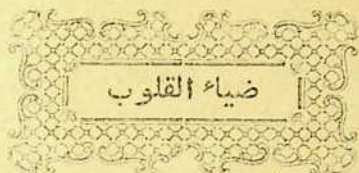 ضياء القلوب